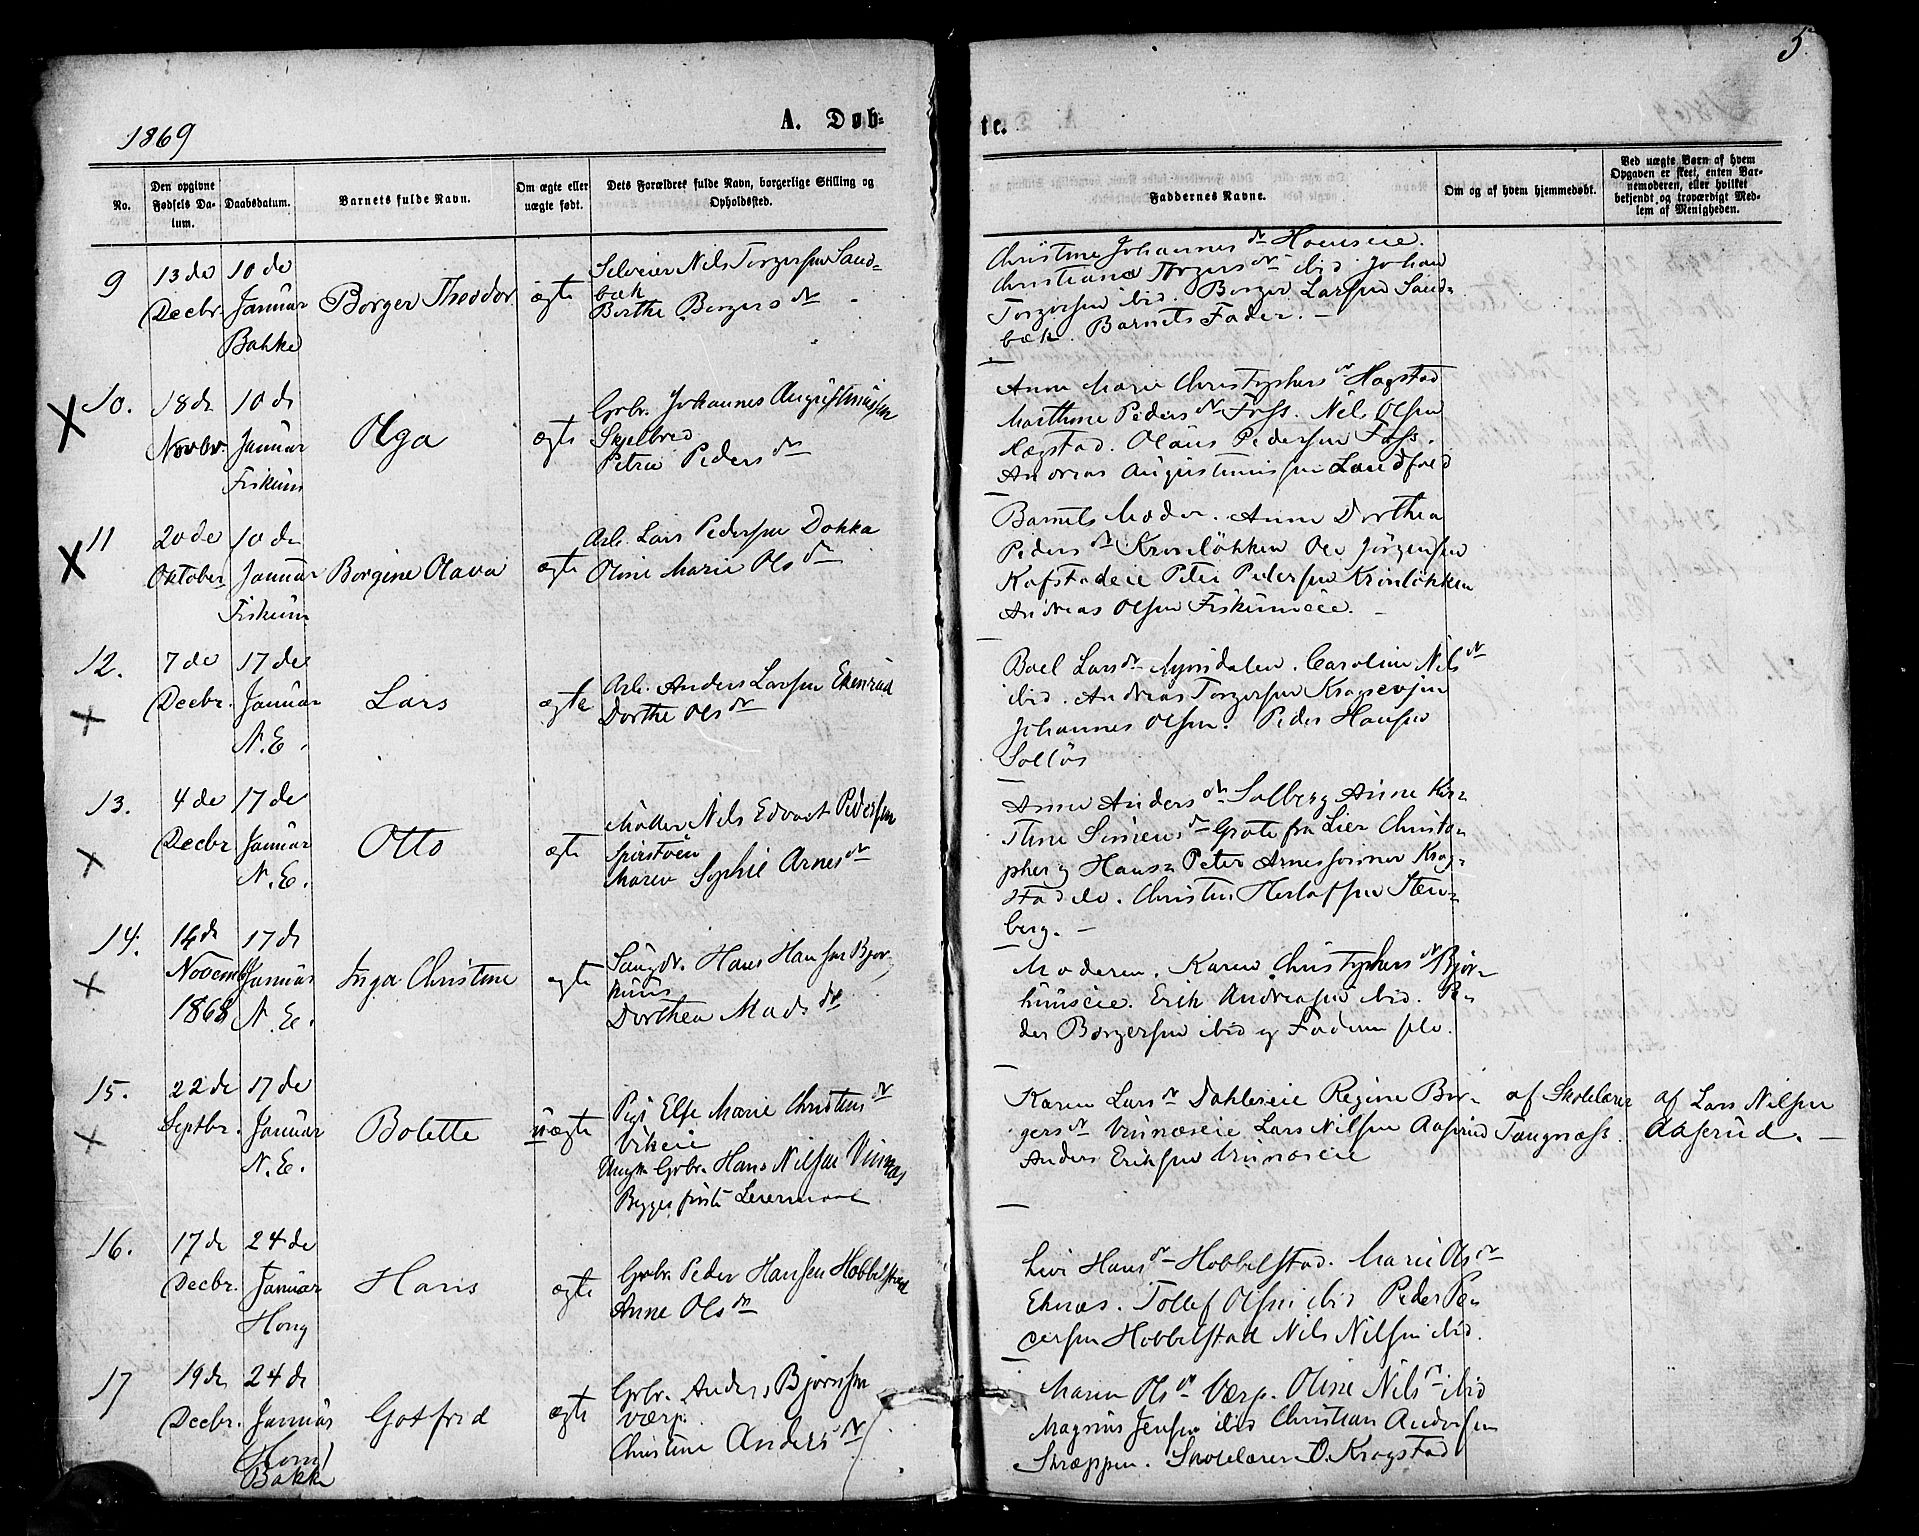 5
1869
A. Døb-
te.
No.
Den opgivne Fødsels Da-
tum.
Daabsdatum.
Barnets fulde Navn.
Om ægte eller
uægte født.
Dets Forældres fulde Navn, borgerlige Stilling og
Opholdssted.
Faddernes Navne.
Om og af hvem hjemmedøbt.
Ved uægte Børn af hvem
Opgaven er skeet, enten Bar-
nemoderen, eller hvilket
bekjendt og troværdigt Med-
lem af Menigheden.
9
13 de
Decbr.
10 de
Januar
Bakke
Borger Theodor
ægte
Selveier Nils Torgersen Sand=
bæk
Berthe Borgersdtr
Christine Johannesdtr Hoenseie.
Christiane Torgersdtr ibid. Johan
Torgersen ibid. Borger Larsen Sand=
bæk. Barnets Fader. -
10.
18 de
Novbr.
10 de
Januar
Fiskum
Olga
ægte
Grbr. Johannes Augustinussen
Skjelbred
Petra Pedersdtr
Anne Marie Christophersdtr Hagstad
Marthine Pedersdtr Foss. Nils Olsen
Hagstad. Olaus Pedersen Foss.
Andreas Augustinussen
11
20 de
Oktober
10 de
Januar
Fiskum
Borgine Olava
ægte
Arb. Lars Pedersen Dokka
Oline Marie Olsdtr
Barnets Moder. Anne Dorthea
Pedersdtr Kronløkken Ole Jørgensen
Kofstadeie Peter Pedersen Kronløkken
Andreas Olsen Fiskumeie. -
12.
7 de
Decbr.
17 de
Januar
N.E.
Lars
ægte
Arb. Anders Larsen Ekerud
Dorthe Olsdtr
Boel Larsdtr Caroline Nilsdtr
ibid. Andreas Torgersen
Johannes Olsen. Peder Hansen
Solløs
13.
4 de
Decbr
17 de
Januar
N.E.
Otto
ægte
Møller Nils Edvart Pedersen
Maren Sophie Arnesdtr
Anne Andersdtr Solberg Anne Kir=
stine Simensdtr Grøte fra Lier Christo=
pher og Hans & Peter Arnessønner Krog=
stad Christen Herlofsen Sten=
berg. -
14.
14 de
Novemb
1868
17 de
Januar
N.E.
Inga Christine
ægte
Hans Hansen Bjør
huus
Dorthea Madsdtr
Moderen. Karen Christophersdtr Bjør=
huuseie. Erik Andreasen ibid. Pe=
der Borgersen ibid og Faderen selv.
15.
22 de
Septbr.
17 de
Januar
N.E.
Bolette
uægte
Pige Else Marie Christensdtr
Vikeie
Ungk. Grbr. Hans Nilsen Vinnæs
Begges første Leiermaal
Karen Larsdtr Dahleseie Regine Bor=
gersdtr Lars Nilsen Aaserud
Anders Eriksen
af Skolelærer
Tangnæss.
af Lars Nilsen
Aaserud. -
16.
17 de
Decbr.
24 de
Januar
Houg
Hans
ægte
Grbr. Peder Hansen Hobbelstad
Anne Olsdtr
Livi Hansdtr Hobbelstad. Mari Olsdtr
Eknæs. Tollef Olsen ibid Peder Pe=
dersen Hobbelstad Nils Nilsen ibid.
17
19 de
Decbr.
24 de
Januar
Bakke
Gotfrid
ægte
Grbr. Anders Bjørnsen
Værp.
Christine Andersdtr
Maren Olsdtr Værp. Oline Nilsdtr ibid
Magnus Jensen ibid Christian Andersen
Skræppen. Skolelærer O. Krogstad